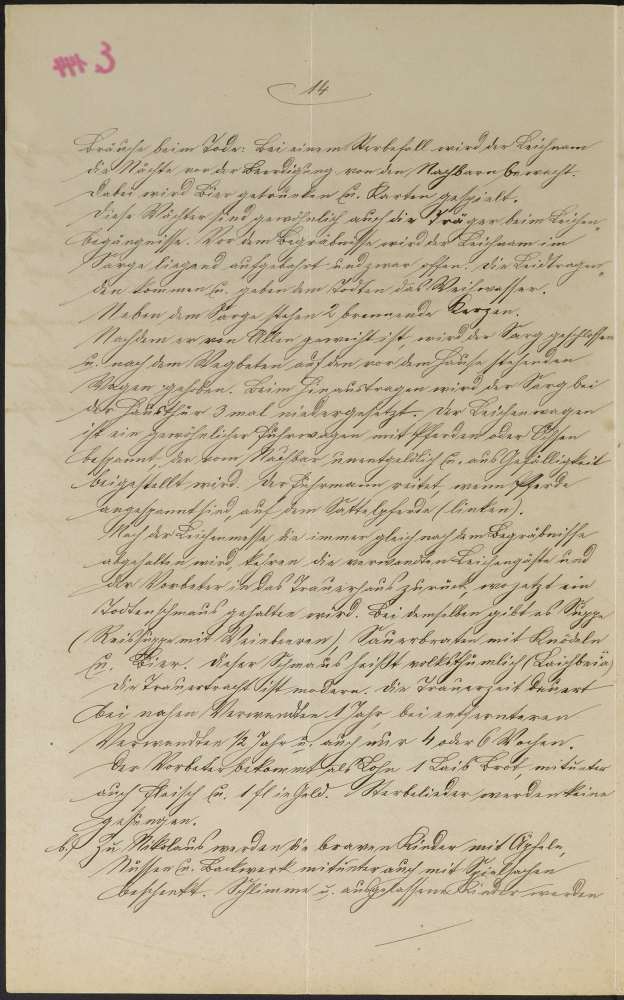 E 144
14
Bräuche beim Tode: Bei einem Sterbefall wird der Leichnam
die Nächte vor der Beerdigung von den Nachbarn bewacht.
Dabei wird Bier getrunken u. Karten gespielt.
Diese Wächter sind gewöhnlich auch die Träger beim Leichen-
begängnisse. Vor dem Begräbnisse wird der Leichnam im
Sarge liegend aufgebahrt und zwar offen. Die Leidtragen-
den kommen u. geben dem Todten das Weihwasser.
Neben dem Sarge stehen 2 brennende Kerzen.
Nachdem er von Allen geweiht ist, wird der Sarg geschlossen
u. nach dem Wegbeten auf den vor dem Hause stehenden
Wagen gehoben. Beim Hinaustragen wird der Sarg bei
der Hausthür 3 mal niedergesetzt. Der Leichenwagen
ist ein gewöhnlicher Fuhrwagen mit Pferden oder Ochsen
bespannt, der vom Nachbar unentgeldlich u. aus Gefälligkeit
beigestellt wird. Der Fuhrmann reitet, wenn Pferde
angespannt sind, auf dem Sattelpferde (linken).
Nach der Leichenmesse die immer gleich nach dem Begräbnisse
abgehalten wird, kehren die verwandten Leichengäste und
der Vorbeter in das Trauerhaus zurück, wo jetzt ein
Todtenschmaus gehalten wird. Bei demselben gibt es Suppe
(Reissuppe mit Weinbeeren), Sauerbraten mit Knödeln
u. Bier. Dieser Schmaus heißt volksthümlich (Laichbeia)
Die Trauertracht ist modern. Die Trauerzeit dauert
bei nahen Verwandten 1 Jahr, bei entfernteren
Verwandten ½ Jahr u. auch nur 4 oder 6 Wochen.
Der Vorbeter bekommt als Lohn 1 Laib Brot, mitunter
auch Fleisch u. 1 fl in Geld. Sterbelieder werden keine
gesungen.
6.) Zu Nikolaus werden die braven Kinder mit Äpfeln,
Nüssen u. Backwerk mitunter auch mit Spielsachen
beschenkt. Schlimme u. ausgelassene Kinder werden